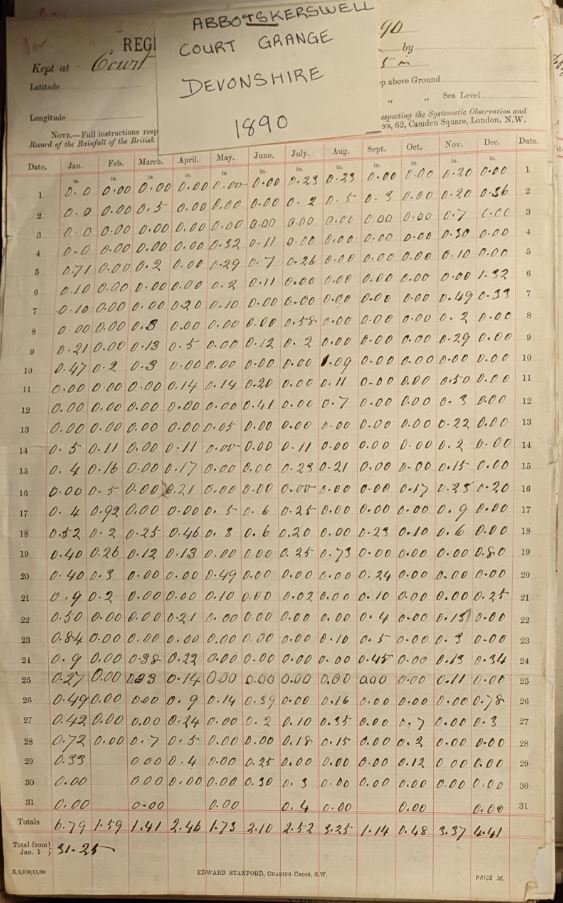 ABBOTSKERSWELL
COURT GRANGE
DEVONSHIRE
1890
REG 90
Kept at Court by
Latitude 5 in
p above Ground
" " Sea Level
Longitude
NOTE.—Full instructions resp especting the Systematic Observation and
Record of the Rainfall of the British ss, 62, Camden Square, London, N.W.
Date. Jan. Feb. March. April. May. June. July. Aug. Sept. Oct. Nov. Dec. Date.
in. in. in. in. in. in. in. in. in. in. in. in.
1 0.0 0.00 0.00 0.00 0.00 0.00 0.23 0.23 0.00 0.00 0.20 0.00 1
2 0.0 0.00 0.5 0.00 0.00 0.00 0.2 0.5 0.3 0.00 0.20 0.36 2
3 0.0 0.00 0.00 0.00 0.00 0.00 0.00 0.00 0.00 0.00 0.7 0.00 3
4 0.0 0.00 0.00 0.00 0.32 0.11 0.00 0.00 0.00 0.00 0.30 0.00 4
5 0.71 0.00 0.2 0.00 0.29 0.7 0.26 0.00 0.00 0.00 0.10 0.00 5
6 0.10 0.00 0.00 0.00 0.2 0.11 0.00 0.00 0.00 0.00 0.00 1.32 6
7 0.10 0.00 0.00 0.20 0.10 0.00 0.00 0.00 0.00 0.00 0.49 0.33 7
8 0.00 0.00 0.3 0.00 0.00 0.00 0.58 0.00 0.00 0.00 0.2 0.00 8
9 0.21 0.00 0.13 0.5 0.00 0.12 0.2 0.00 0.00 0.00 0.29 0.00 9
10 0.47 0.2 0.3 0.00 0.00 0.00 0.00 1.09 0.00 0.00 0.00 0.00 10
11 0.00 0.00 0.00 0.14 0.14 0.20 0.00 0.11 0.00 0.00 0.50 0.00 11
12 0.00 0.00 0.00 0.00 0.00 0.41 0.00 0.7 0.00 0.00 0.3 0.00 12
13 0.00 0.00 0.00 0.00 0.05 0.00 0.00 0.00 0.00 0.00 0.22 0.00 13
14 0.5 0.11 0.00 0.11 0.00 0.00 0.11 0.00 0.00 0.00 0.2 0.00 14
15 0.4 0.16 0.00 0.17 0.00 0.00 0.23 0.21 0.00 0.00 0.15 0.00 15
16 0.00 0.5 0.00 0.21 0.00 0.00 0.00 0.00 0.00 0.17 0.23 0.20 16
17 0.4 0.92 0.00 0.00 0.5 0.6 0.25 0.00 0.00 0.00 0.9 0.00 17
18 0.52 0.2 0.25 0.46 0.3 0.6 0.20 0.00 0.23 0.10 0.6 0.00 18
19 0.40 0.26 0.12 0.13 0.00 0.00 0.25 0.73 0.00 0.00 0.00 0.80 19
20 0.40 0.3 0.00 0.00 0.49 0.00 0.00 0.00 0.24 0.00 0.00 0.00 20
21 0.9 0.2 0.00 0.00 0.10 0.00 0.02 0.00 0.10 0.00 0.00 0.25 21
22 0.50 0.00 0.00 0.21 0.00 0.00 0.00 0.00 0.4 0.00 0.15 0.00 22
23 0.84 0.00 0.00 0.00 0.00 0.00 0.00 0.10 0.5 0.00 0.3 0.00 23
24 0.9 0.00 0.38 0.22 0.00 0.00 0.00 0.00 0.45 0.00 0.13 0.34 24
25 0.27 0.00 0.14 0.00 0.00 0.00 0.00 0.00 0.00 0.11 0.00 25
26 0.49 0.00 0.00 0.9 0.14 0.39 0.00 0.16 0.00 0.00 0.00 0.78 26
27 0.42 0.00 0.00 0.24 0.00 0.2 0.10 0.35 0.00 0.7 0.00 0.3 27
28 0.72 0.00 0.7 0.5 0.00 0.00 0.18 0.15 0.00 0.2 0.00 0.00 28
29 0.33 0.00 0.4 0.00 0.25 0.00 0.00 0.00 0.12 0.00 0.00 29
30 0.00 0.00 0.00 0.00 0.30 0.3 0.00 0.00 0.00 0.00 0.00 30
31 0.00 0.00 0.00 0.4 0.00 0.00 0.00 31
Totals 6.79 1.59 1.41 2.46 1.73 2.10 2.52 3.25 1.14 0.48 3.37 4.41
Total from
Jan. 1 31.25
EDWARD STANFORD, CHARING CROSS, S.W. PRICE 3d.